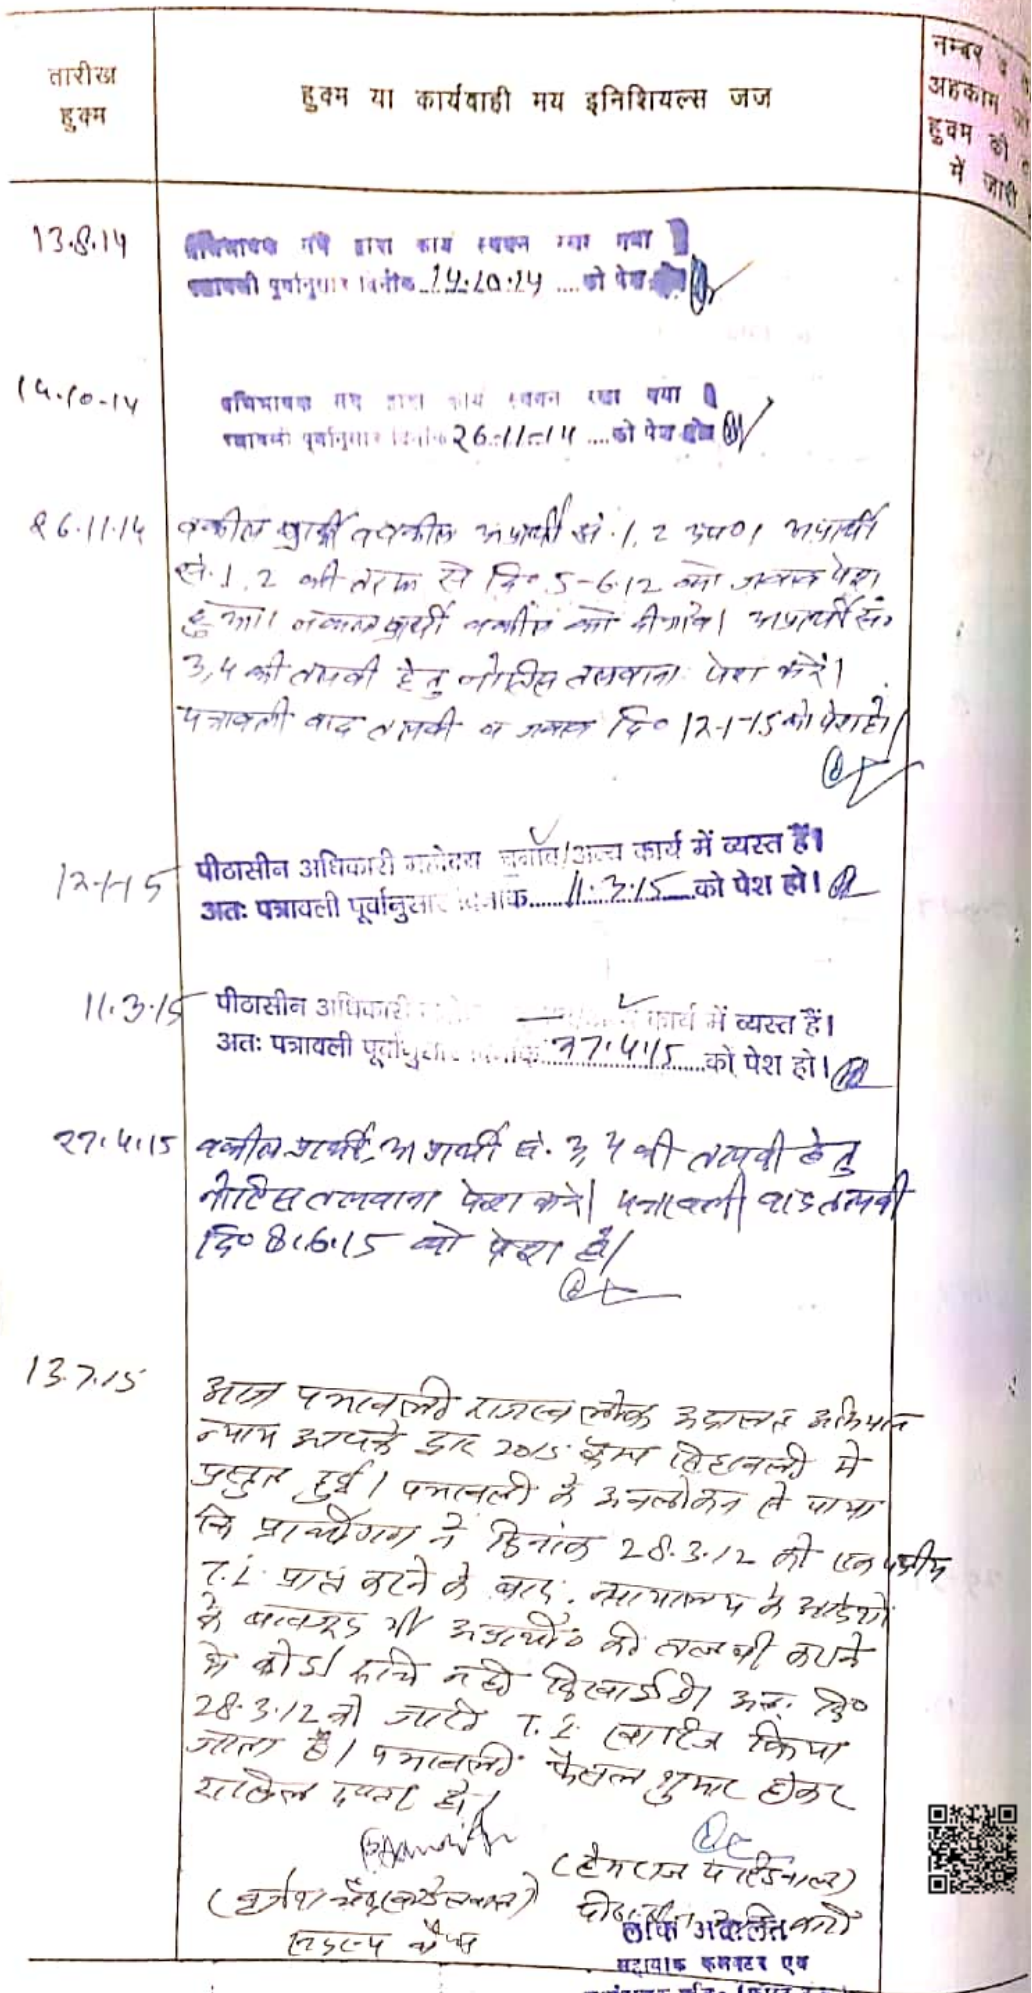 तारीख
हुक्म
हुक्म या कार्यवाही मय इनिशियल्स जज
नम्बर व
अहकाम
हुक्म की
में जारी
13.8.14
द्वारा कार्य स्थगन रखा गया
पत्रावली पूर्वानुसार दिनांक 14.10.14 को पेश
14.10.14
द्वारा कार्य स्थगन रखा गया
पत्रावली पूर्वानुसार दिनांक 26-11-14 को पेश हो
26.11.14
वकील प्रार्थी व वकील अप्रार्थी सं. 1, 2 उप0। अप्रार्थी
सं. 1, 2 की तरफ से दि० 5-6-12 को जवाब पेश
हुआ। नकल प्रार्थी वकील को दी जावे। अप्रार्थी सं०
3,4 की तलबी हेतु नोटिस तलवाना पेश करें।
पत्रावली वाद तलबी व जवाब दि० 12-1-15 को पेश हो।
12-1-15
पीठासीन अधिकारी महोदय चुनाव/अन्य कार्य में व्यस्त हैं।
अतः पत्रावली पूर्वानुसार दिनांक 11.3.15 को पेश हो।
11.3.15
पीठासीन अधिकारी कार्य में व्यस्त हैं।
अतः पत्रावली पूर्वानुसार दिनांक 27.4.15 को पेश हो।
27.4.15
वकील प्रार्थी, अप्रार्थी सं. 3, 4 की तलबी हेतु
नोटिस तलवाना पेश करें। पत्रावली वाद तलबी
दि० 8.6.15 को पेश हो।
13.7.15
आज पत्रावली राजस्व लोक अदालत अभियान
न्याय आपके द्वार 2015 कैम्प में
प्रस्तुत हुई। पत्रावली के अवलोकन से पाया
कि प्रार्थीगण ने दिनांक 28.3.12 को एक पक्षीय
T.I. प्राप्त करने के बाद, न्यायालय के आदेशों
के बावजूद भी अप्रार्थी० की तलबी कराने
में कोई रूचि नहीं दिखाई है। अतः दि०
28.3.12 को जारी T.I. खारिज किया
जाता है। पत्रावली फैसल शुमार होकर
दाखिल दफ्तर हो।
(हेमराज)
लोक अदालत
सहायक कलक्टर एवं